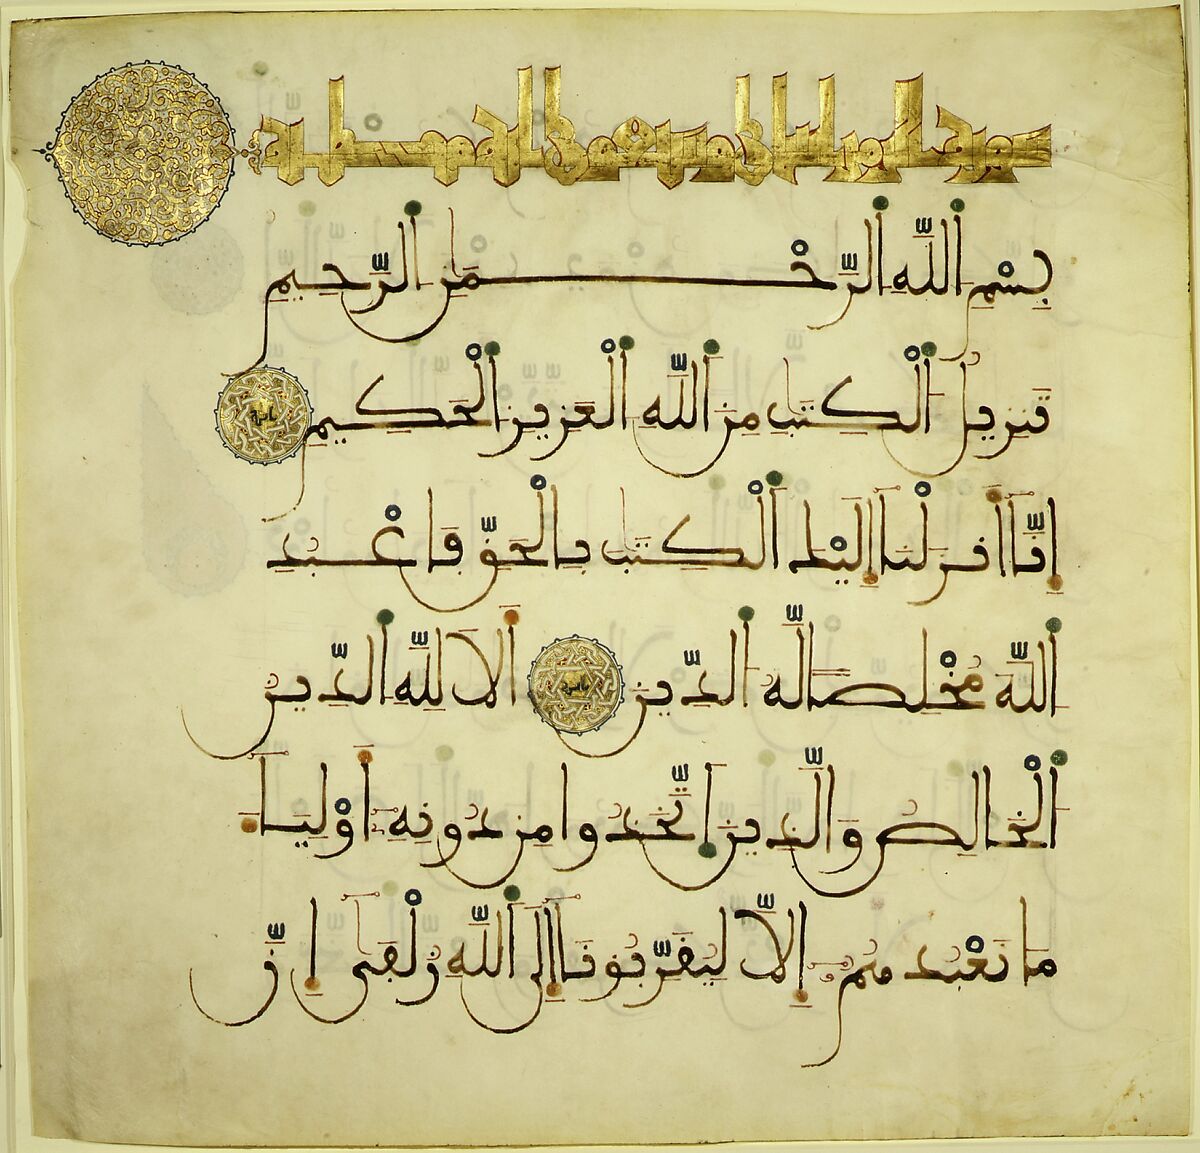 سورة الزمر اثنان وسبعون اية مكية
بِسْمِ اللَّهِ الرَّحْمَٰنِ الرَّحِيمِ
تَنزِيلُ الْكِتَٰبِ مِنَ اللَّهِ الْعَزِيزِ الْحَكِيمِ
إِنَّا أَنزَلْنَا إِلَيْكَ الْكِتَٰبَ بِالْحَقِّ فَاعْبُدِ
اللَّهَ مُخْلِصًا لَهُ الدِّينَ أَلَا لِلَّهِ الدِّينُ
الْخَالِصُ وَالَّذِينَ اتَّخَذُوا مِن دُونِهِ أَوْلِيَاءَ
مَا نَعْبُدُهُمُ إِلَّا لِيُقَرِّبُونَا إِلَى اللَّهِ زُلْفَىٰ إِنَّ